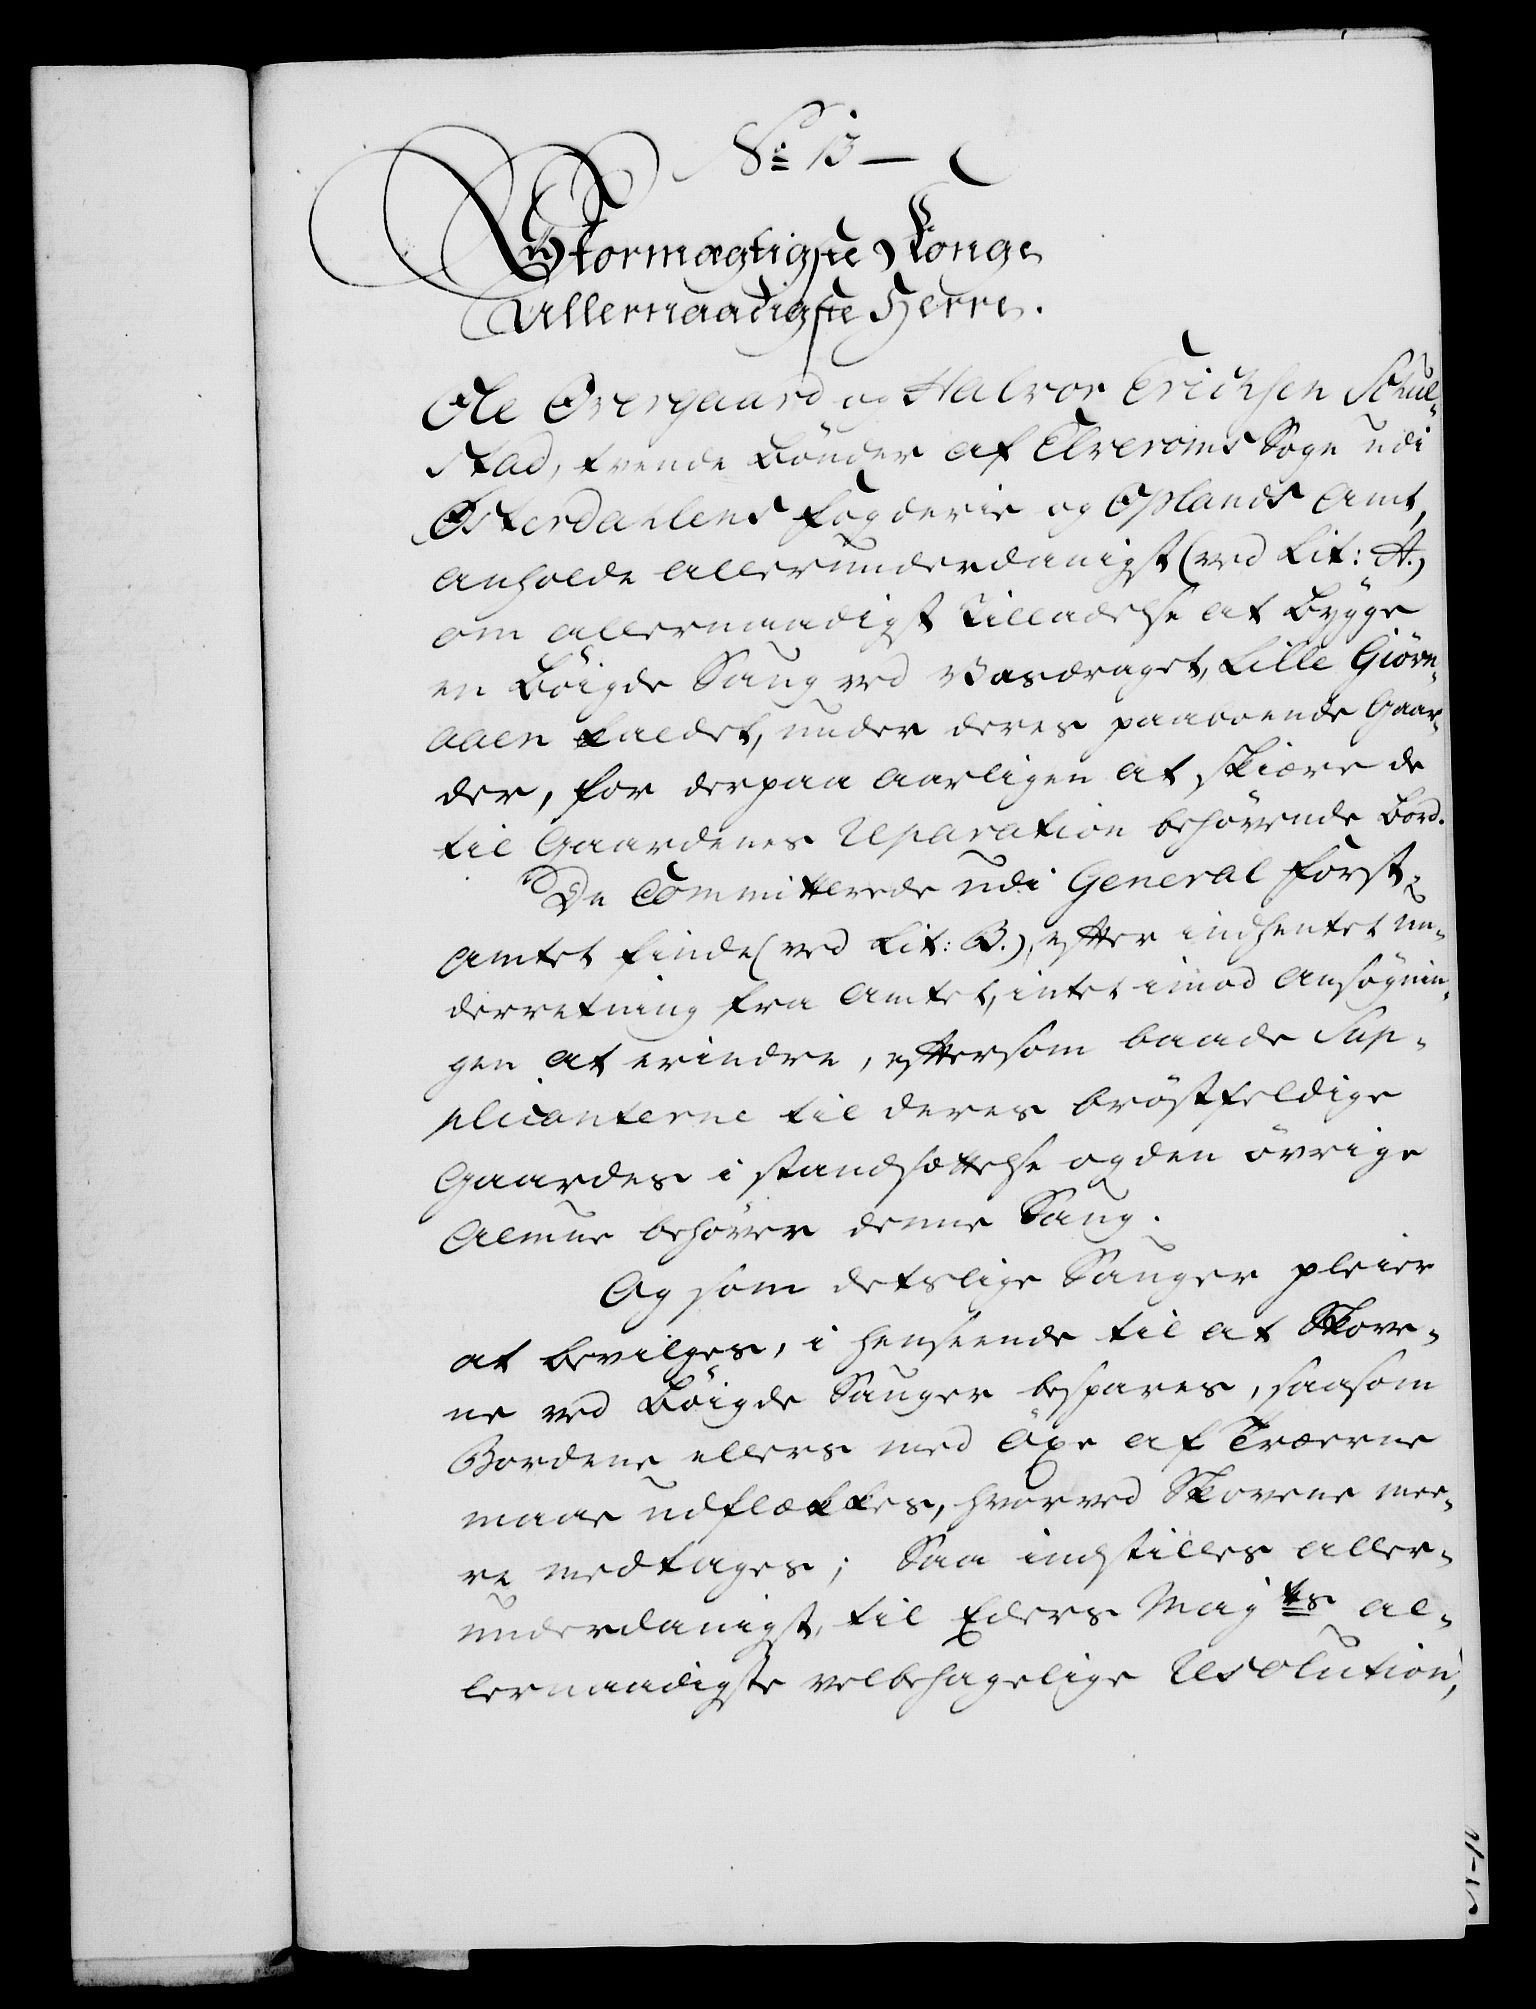 No 13 —
Stormægtigste Konge
Allernaadigste Herre.
Ole Overgaard og Halvor Erichsen Schul-
stad, tvende Bönder af Elveroms Sogn udi
Østerdahlens Fogderie og Oplands Amt,
anholde allerunderdanigst (ved Lit: A.)
om allernaadigst Tilladelse at bygge
en Böigde Saug ved Vasdraget, Lille Giörn-
aaen kaldet, under deres paaboende Gaar-
der, for derpaa aarligen at skiære de
til Gaardenes Reparation behövende Bord.
De Committerede udi General Forst-
amtet finde (ved Lit: B.), efter indhentet un-
derretning fra Amtet, intet imod Ansögnin-
gen at erindre, eftersom baade Sup-
plicanterne til deres bröstfeldige
Gaardes i standsættelse og den övrige
Almue behöver denne Saug.
Og som detslige Sauger pleier
at bevilges, i henseende til at Skove-
ne ved Böigde Sauger bespares, saasom
Bordene ellers med Öxe af Træerne
maae udflækkes, hvorved Skovene mee-
re medtages; Saa indstilles aller-
underdanigst, til Eders Majts al-
lernaadigste velbehagelige Resolution,